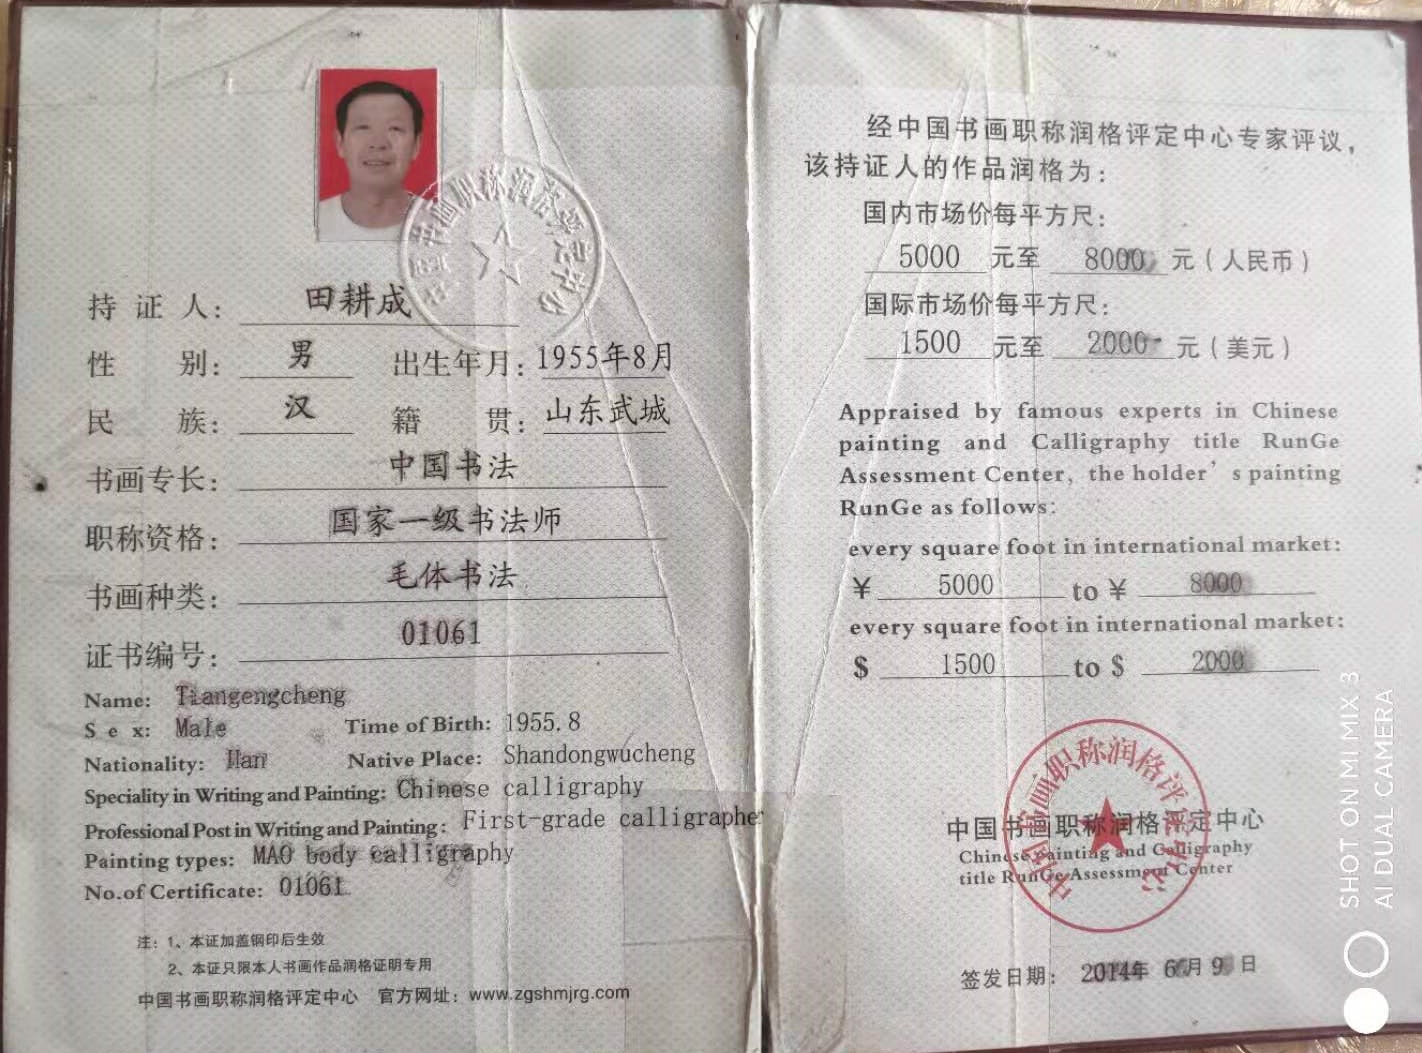 持证人：田耕成
性别：男 出生年月：1955年8月
民族：汉 籍贯：山东武城
书画专长：中国书法
职称资格：国家一级书法师
书画种类：毛体书法
证书编号：01061
Name: Tiangengcheng
Sex: Male Time of Birth: 1955.8
Nationality: Han Native Place: Shandongwucheng
Speciality in Writing and Painting: Chinese calligraphy
Professional Post in Writing and Painting: First-grade calligrapher
Painting types: MAO body calligraphy
No.of Certificate: 01061
注：1、本证加盖钢印后生效
2、本证只限本人书画作品润格证明专用
中国书画职称润格评定中心 官方网址：www.zgshmjrg.com
中国书画职称润格评定中心
经中国书画职称润格评定中心专家评议，
该持证人的作品润格为：
国内市场价每平方尺：
5000 元至 8000 元（人民币）
国际市场价每平方尺：
1500 元至 2000 元（美元）
Appraised by famous experts in Chinese
painting and Calligraphy title RunGe
Assessment Center, the holder's painting
RunGe as follows:
every square foot in international market:
¥ 5000 to ¥ 8000
every square foot in international market:
$ 1500 to $ 2000
中国书画职称润格评定中心
中国书画职称润格评定中心
Chinese painting and Calligraphy
title RunGe Assessment Center
签发日期：2014年6月9日
SHOT ON MI MIX 3
AI DUAL CAMERA